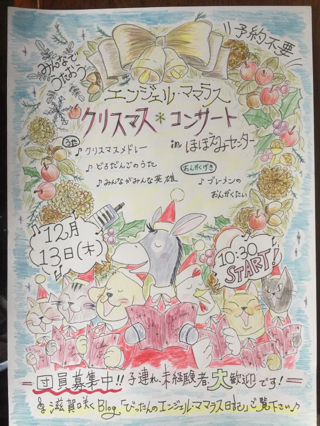 みんなで
うたおう
\\予約不要//
エンジェル・ママラス
クリスマス*コンサート
in ほほえみセンター
うた
♪クリスマスメドレー
♪どろだんごのうた
♪みんながみんな英雄
おんがくげき
♪ブレーメンの
おんがくたい
12月
13日(木)
10:30
START!
団員募集中!!子連れ・未経験者、大歓迎です!
Blog「ぴったんのエンジェル・ママラス日記」ご覧下さい♪